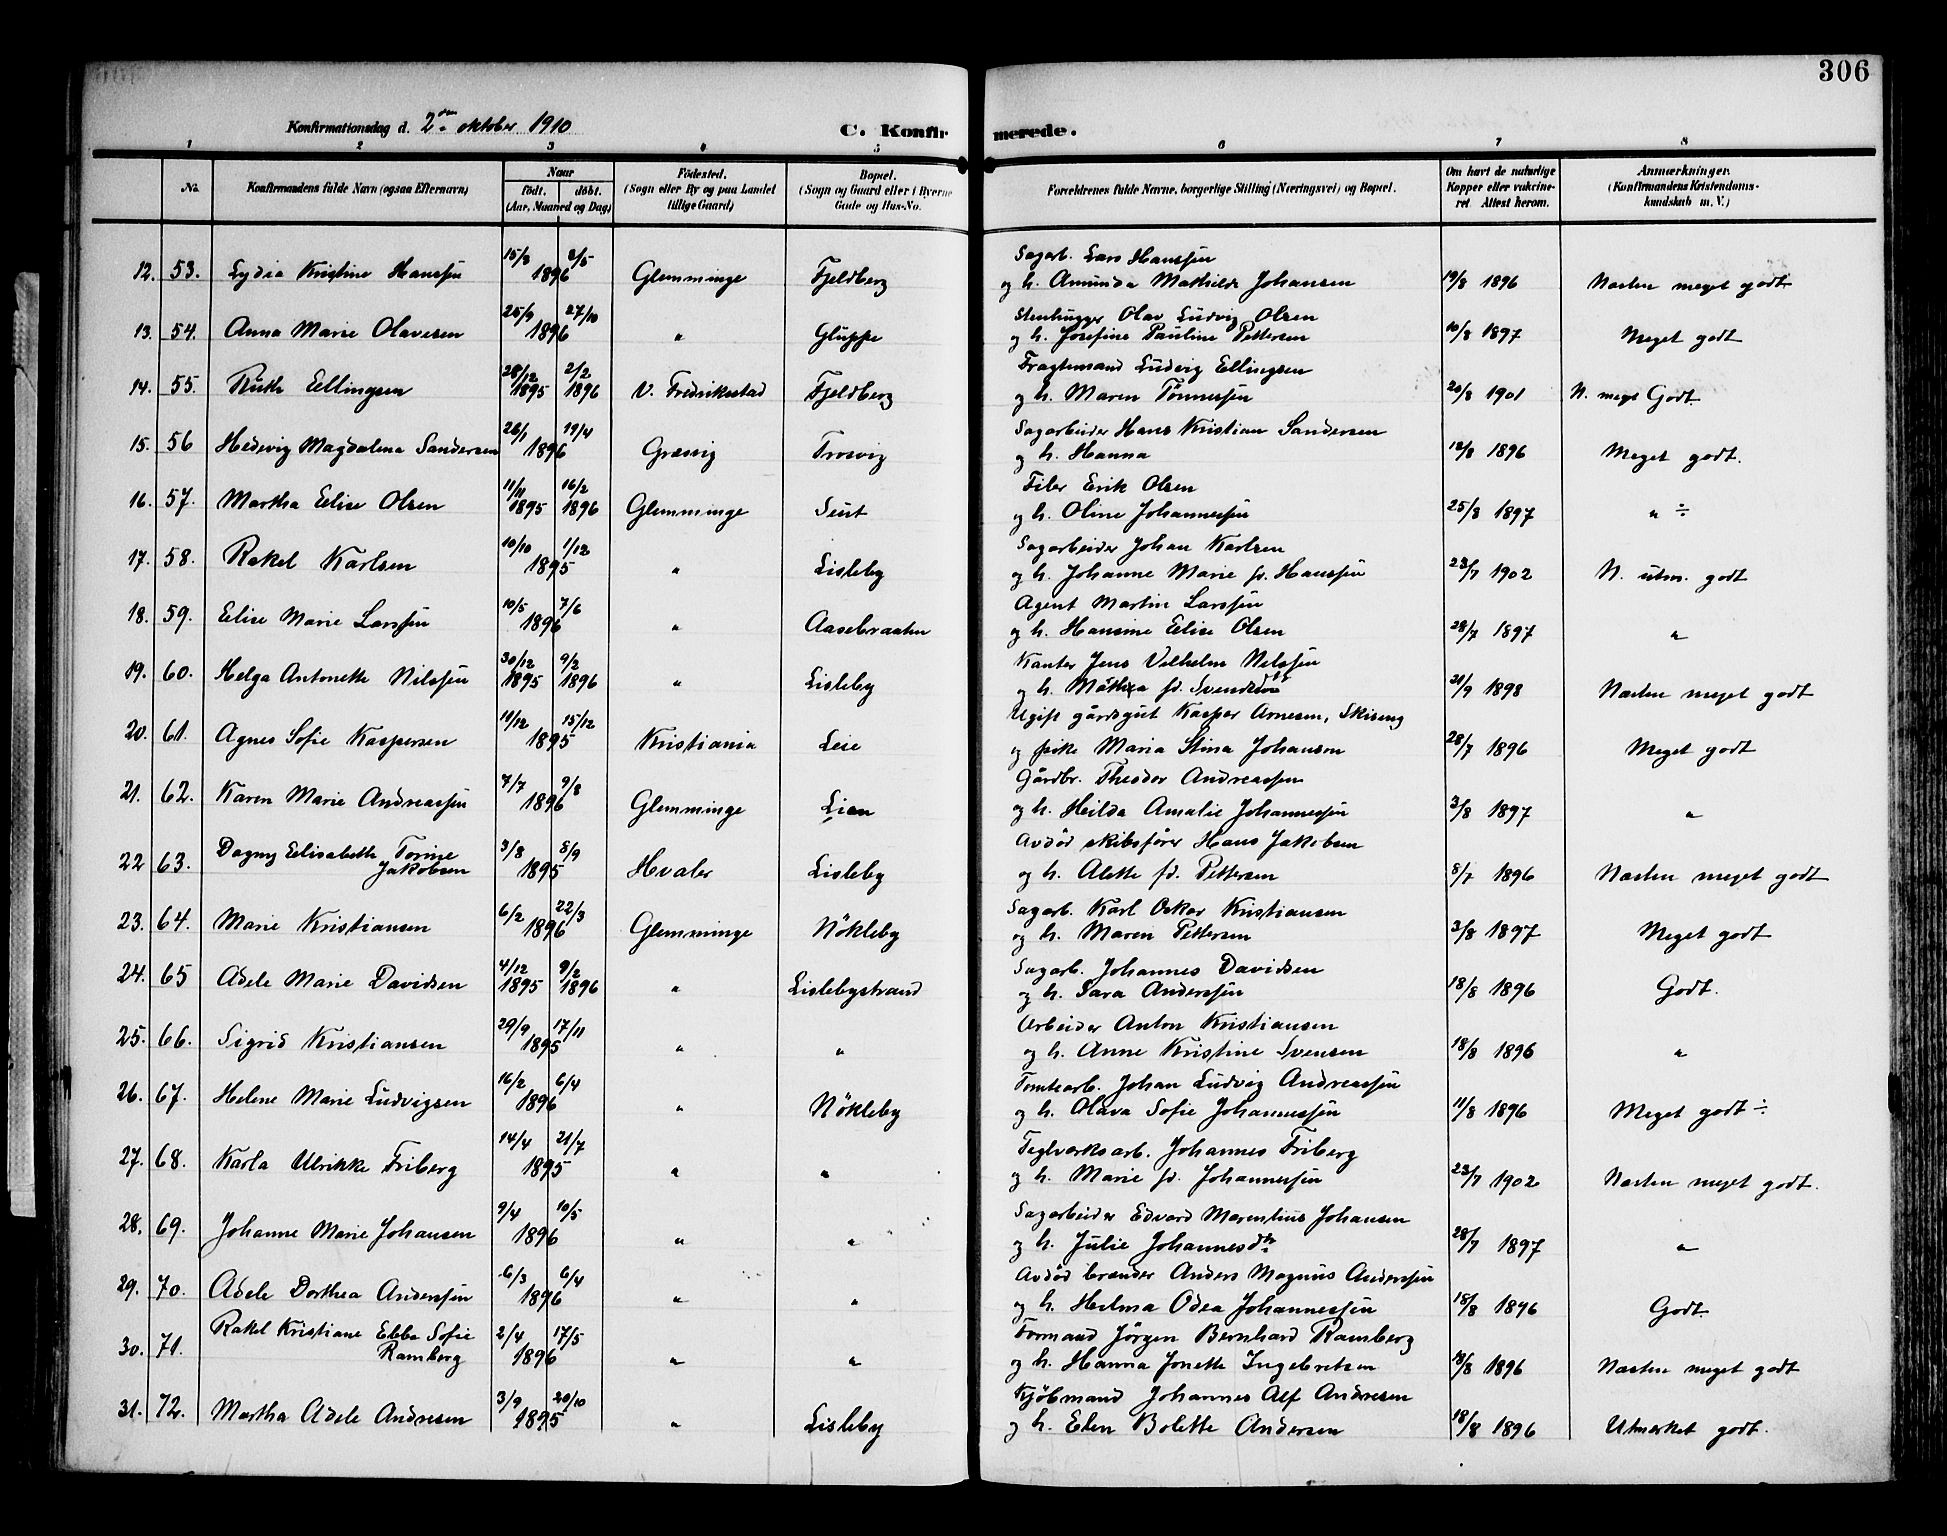 306
Konfirmationsdag d. 2den oktober 1910
C. Konfirmerede.
1 2 3 4 5 6 7 8
No. Konfirmandens fulde Navn (ogsaa Efternavn) Naar født. døbt. (Aar, Maaned og Dag) Fødested. (Sogn eller By og paa Landet tillige Gaard) Bopæl. (Sogn og Gaard eller i Byerne Gade og Hus-No. Forældrenes fulde Navne, borgerlige Stilling (Næringsvei) og Bopæl. Om havt de naturlige Kopper eller vakcineret Attest herom. Anmærkninger. (Konfirmandens Kristendomskundskab m. V.)
12. 53. Lydia Kristine Hanssen 15/3 2/5 1896 Glemminge Fjeldberg Sagarb. Lars Hanssen
og h. Amunda Mathilde Johansen 19/8 1896 Næsten meget godt
13. 54. Anna Marie Olavesen 25/9 27/10 1896 " Gluppe Stenhugger Olav Ludvig Olsen
og h. Josefine Pauline Pettersen 10/8 1897 Meget godt
14. 55. Ruth Ellingsen 28/12 1895 2/2 1896 V. Fredrikstad Fjeldberg Fragtemand Ludvig Ellingsen
og h. Maren Tönnessen 20/8 1901 N. meget Godt.
15. 56 Hedevig Magdalena Sandersen 26/1 19/4 1896 Græsvig Trosvig Sagarbeider Hans Kristian Sandersen
og h. Hanna 12/8 1896 Meget godt.
16. 57. Martha Elise Olsen 11/11 1895 16/2 1896 Glemminge Seut Filer Erik Olsen
og h. Oline Johannessen 25/8 1897 " ÷
17. 58. Rakel Karlsen 10/10 1/12 1895 " Lisleby Sagarbeider Johan Karlsen
og h. Johanne Marie f. Hanssen 23/7 1902 N. utm. godt
18. 59. Elise Marie Larssen 10/5 7/6 1896 " Aasebraaten Agent Martin Larssen
og h. Hansine Elise Olsen 28/7 1897 "
19. 60. Helga Antonette Nilssen 30/12 1895 9/2 1896 " Lisleby Kanter Jens Vilhelm Nilssen
og h. Mathea fd. Svendsen 21/9 1898 Næsten meget godt
20. 61. Agnes Sofie Kaspersen 11/12 15/12 1895 Kristiania Leie Ugift gårdsgut Kasper Arnesen, Skiseng
og pike Maria Stina Johanson 28/7 1896 Meget godt
21. 62. Karen Marie Andreassen 7/7 9/8 1896 Glemminge Lien Gårdbr. Theodor Andreassen
og h. Hilda Amalie Johannessen 3/8 1897 "
22 63. Dagny Elisabeth Torine
Jakobsen 3/8 8/9 1895 Hvaler Lisleby Avdöd skibsförer Hans Jakobsen
og h. Alette fd. Pettersen 8/7 1896 Næsten meget godt
23. 64. Marie Kristiansen 6/2 22/3 1896 Glemminge Nökleby Sagarb. Karl Oskar Kristiansen
og h. Maren Pettersen 3/8 1897 Meget godt
24. 65 Adele Marie Davidsen 4/12 1895 9/2 1896 " Lislebystrand Sagarb. Johannes Davidsen
og h. Sara Anderssen 18/8 1896 Godt.
25. 66. Sigrid Kristiansen 29/9 17/11 1895 " " Arbeider Anton Kristiansen
og h. Anne Kristine Svensen 18/8 1896 "
26. 67. Helene Marie Ludvigsen 16/2 6/4 1896 " Nökleby Tomtearb. Johan Ludvig Andreassen
og h. Olava Sofie Johannessen 11/8 1896 Meget godt ÷
27. 68. Karla Ulrikke Friberg 14/4 21/7 1895 " " Teglverksarb. Johannes Friberg
og h. Marie fd. Johannessen 23/7 1902 Næsten meget godt.
28. 69. Johanne Marie Johansen 9/4 10/5 1896 " " Sagarbeider Edvard Marentius Johansen
og h. Julie Johannesdtr. 28/7 1897 "
29. 70. Adele Dorthea Anderssen 6/3 6/4 1896 " " Avdöd brænder Anders Magnus Anderssen
og h. Helma Odea Johannessen 18/8 1896 Godt.
30. 71. Rakel Kristiane Ebba Sofie
Ramberg 2/4 17/5 1896 " " Formand Jörgen Bernhard Ramberg
og h. Hanna Jonette Ingebretsen 18/8 1896 Næsten meget godt
31. 72. Martha Adele Andresen 3/9 20/10 1895 " Lisleby Kjöbmand Johannes Alf Andresen
og h. Elen Bolette Andersen 18/8 1896 Utmerket godt.